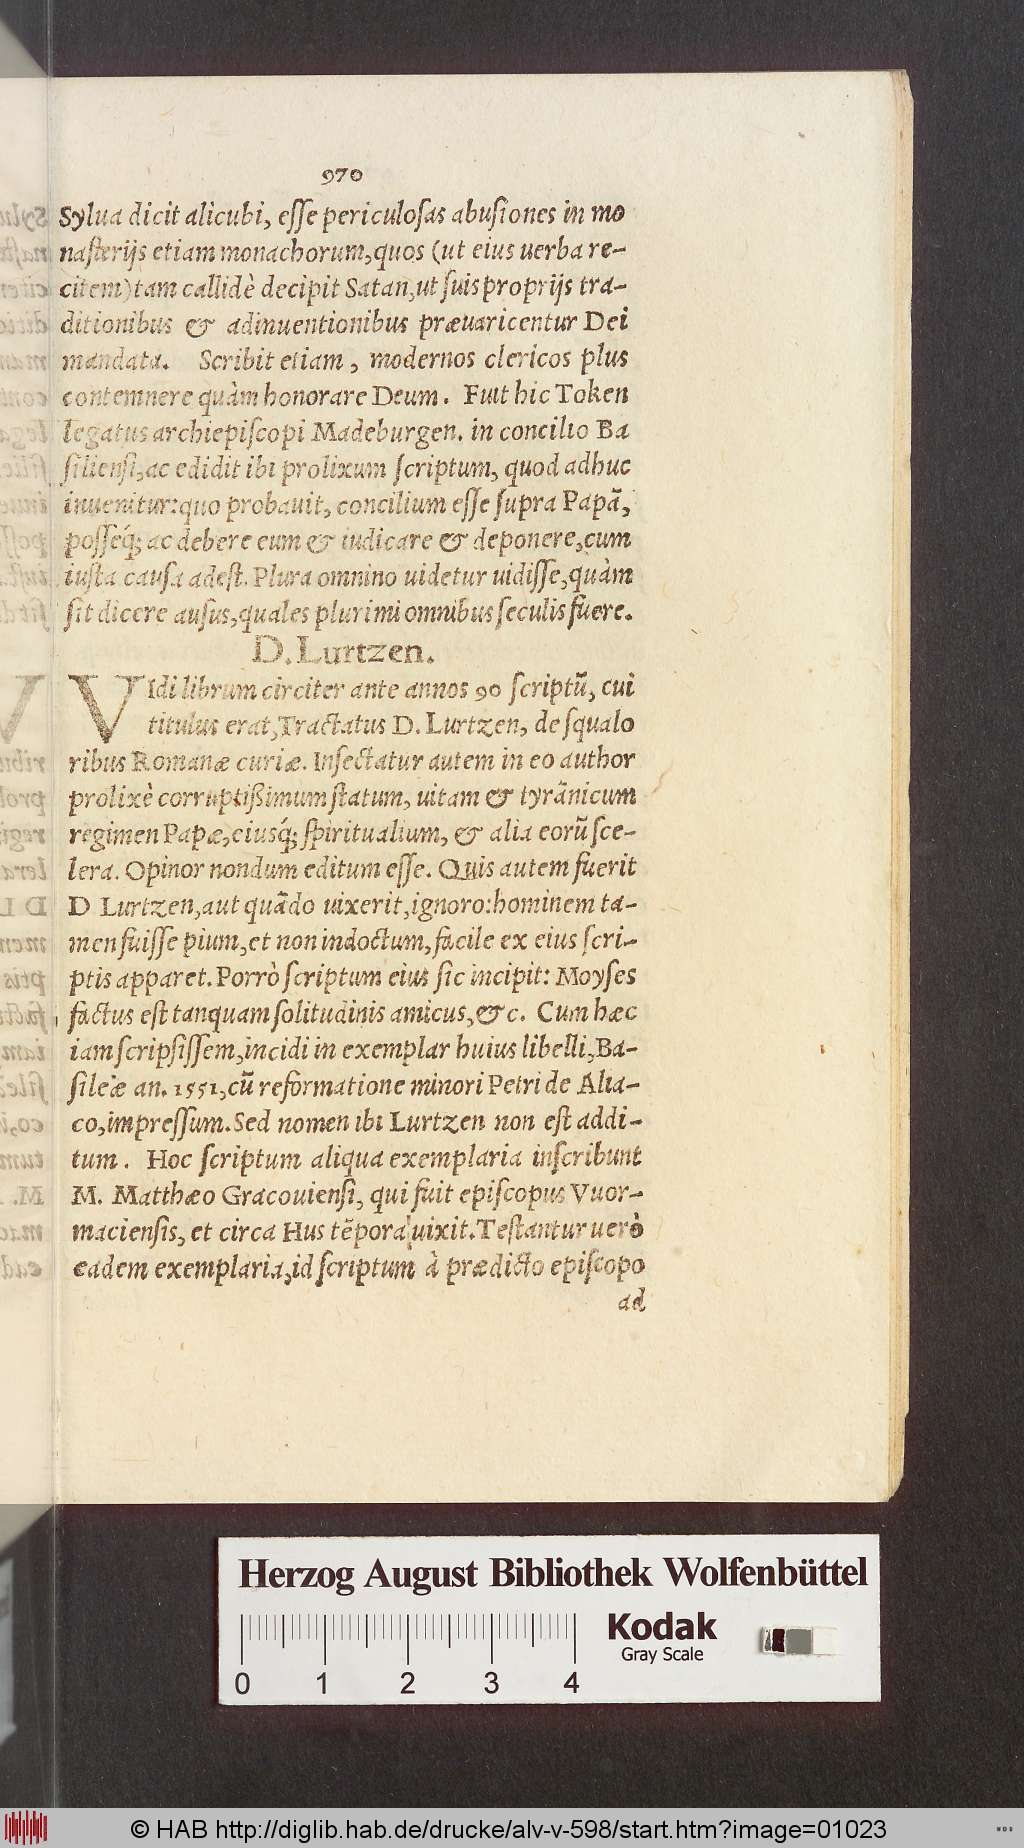 970
Sylua dicit alicubi, esse periculosas abusiones in mo
nasterijs etiam monachorum, quos (ut eius uerba re-
citem) tam callidè decipit Satan, ut suis proprijs tra-
ditionibus & adinuentionibus præuaricentur Dei
mandata. Scribit etiam, modernos clericos plus
contemnere quàm honorare Deum. Fuit hic Token
legatus archiepiscopi Madeburgen. in concilio Ba
siliensi, ac edidit ibi prolixum scriptum, quod adhuc
inuenitur: quo probauit, concilium esse supra Papã,
posseq́; ac debere eum & iudicare & deponere, cum
iusta causa adest. Plura omnino uidetur uidisse, quàm
sit dicere ausus, quales plurimi omnibus seculis fuere.
D. Lurtzen.
VIdi librum circiter ante annos 90 scriptũ, cui
titulus erat, Tractatus D. Lurtzen, de squalo
ribus Romanæ curiæ. Insectatur autem in eo author
prolixè corruptißimum statum, uitam & tyrãnicum
regimen Papæ, eiusq́; spiritualium, & alia eorũ sce-
lera. Opinor nondum editum esse. Quis autem fuerit
D Lurtzen, aut quãdo uixerit, ignoro: hominem ta-
men fuisse pium, et non indoctum, facile ex eius scri-
ptis apparet. Porrò scriptum eius sic incipit: Moyses
factus est tanquam solitudinis amicus, &c. Cum hæc
iam scripsissem, incidi in exemplar huius libelli, Ba-
sileæ an. 1551, cũ reformatione minori Petri de Alia-
co, impressum. Sed nomen ibi Lurtzen non est addi-
tum. Hoc scriptum aliqua exemplaria inscribunt
M. Matthæo Gracouiensi, qui fuit episcopus Vuor-
maciensis, et circa Hus tẽpora uixit. Testantur uerò
eadem exemplaria, id scriptum à prædicto episcopo
ad
Herzog August Bibliothek Wolfenbüttel
0 1 2 3 4
Kodak
Gray Scale
© HAB http://diglib.hab.de/drucke/alv-v-598/start.htm?image=01023